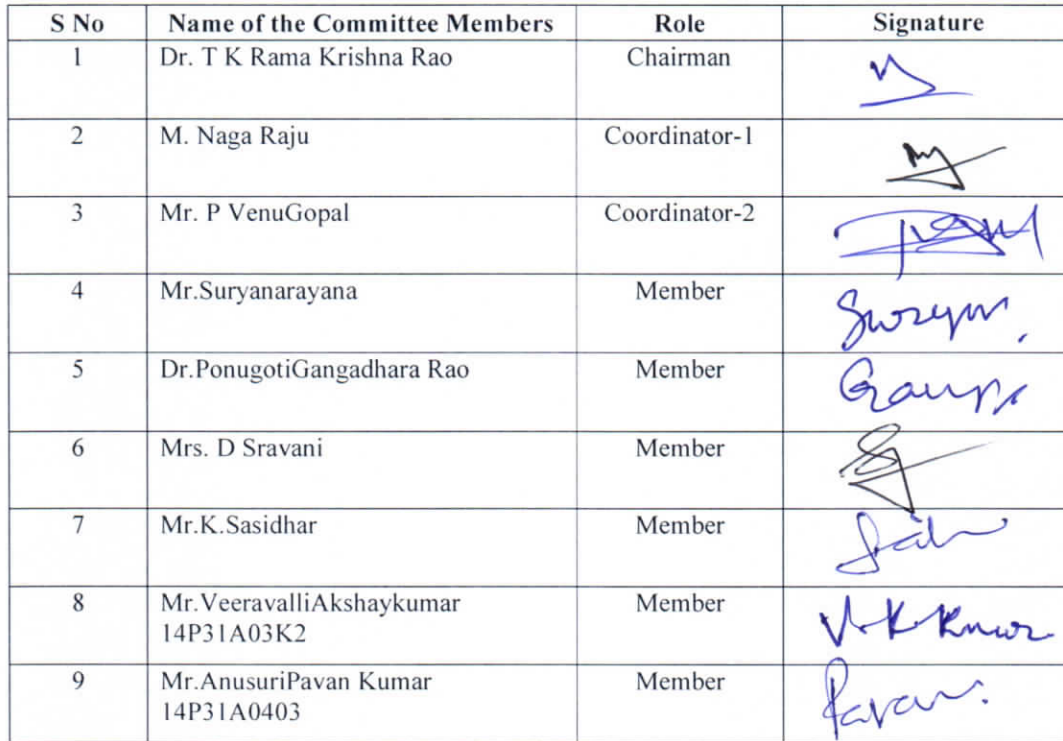 S No Name of the Committee Members Role Signature
1 Dr. T K Rama Krishna Rao Chairman
2 M. Naga Raju Coordinator-1
3 Mr. P VenuGopal Coordinator-2
4 Mr.Suryanarayana Member
5 Dr.PonugotiGangadhara Rao Member
6 Mrs. D Sravani Member
7 Mr.K.Sasidhar Member
8 Mr.VeeravalliAkshaykumar Member
14P31A03K2
9 Mr.AnusuriPavan Kumar Member Pavan.
14P31A0403